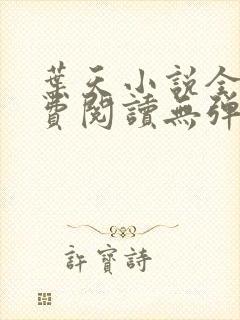 葉天小說全
費閱讀無彈
許寶詩